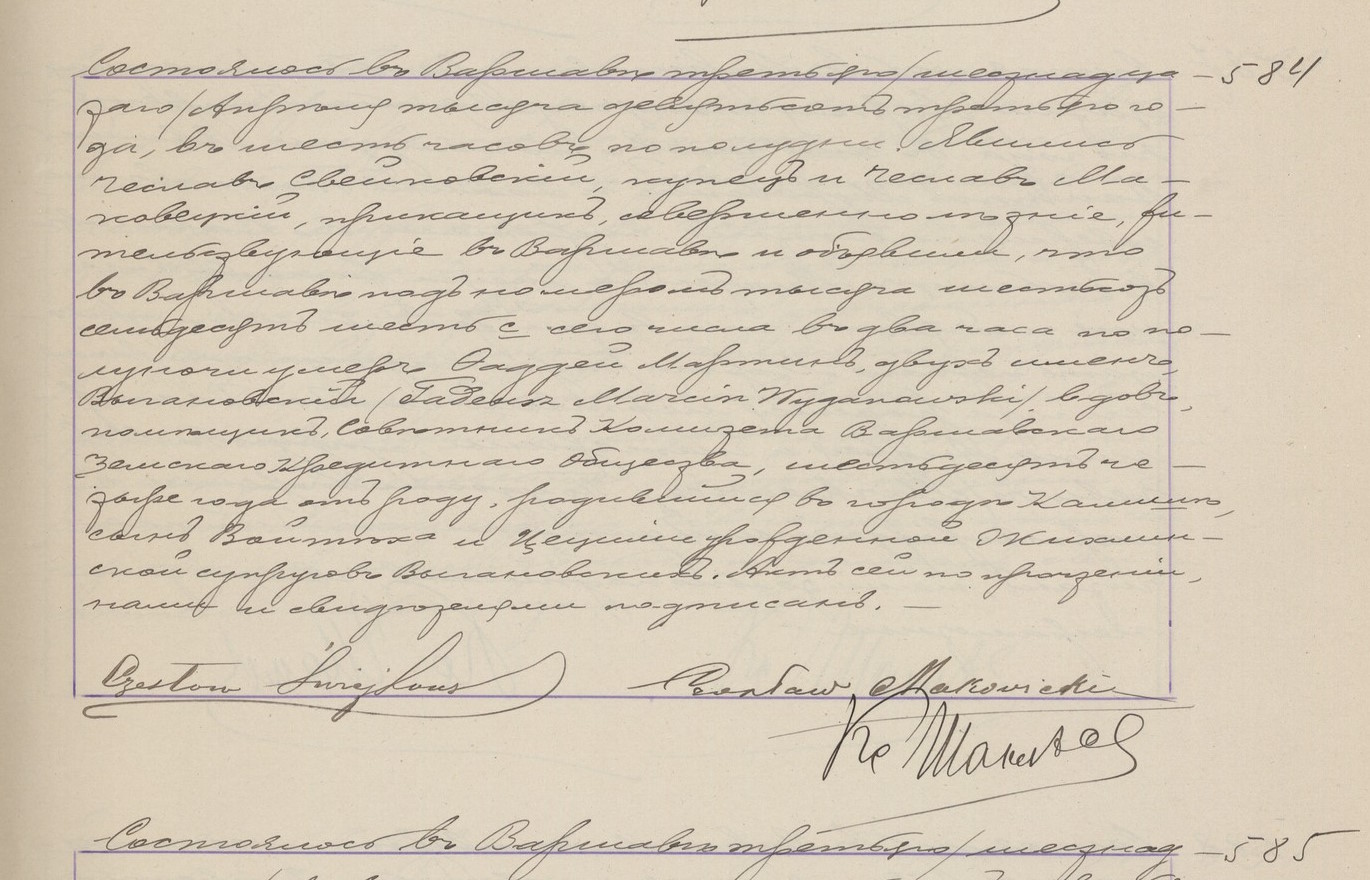 Состоялось въ Варшавѣ третьяго/шестнадца — 584
таго/Апрѣля тысяча девятьсотъ третьяго го —
да, въ шесть часовъ по полудни. Явились
Чеславъ Свейковскій, купецъ и Чеславъ Ма —
ковецкій, прикащикъ, совершеннолѣтніе, жи —
тельствующіе въ Варшавѣ и объявили, что
въ Варшавѣ подъ номеромъ тысяча шестьсотъ
семьдесятъ шесть с сего числа въ два часа по по —
луночи умеръ Фаддей Мартинъ, двухъ именъ,
Выгановскій /Tadeusz Marcin Wyganowski/ вдовъ,
помѣщикъ, Совѣтникъ Комитета Варшавскаго
Земскаго Кредитнаго Общества, шестьдесятъ че —
тыре года отъ роду, родившійся въ городѣ Калишѣ,
сынъ Войтѣха и Цециліи урожденной Жихлин —
ской супруговъ Выгановскихъ. Актъ сей по прочтеніи,
нами и свидѣтелями подписанъ. —
Czesław
Czesław Makowiecki
Кс
Состоялось въ Варшавѣ третьяго/шестнад — 585